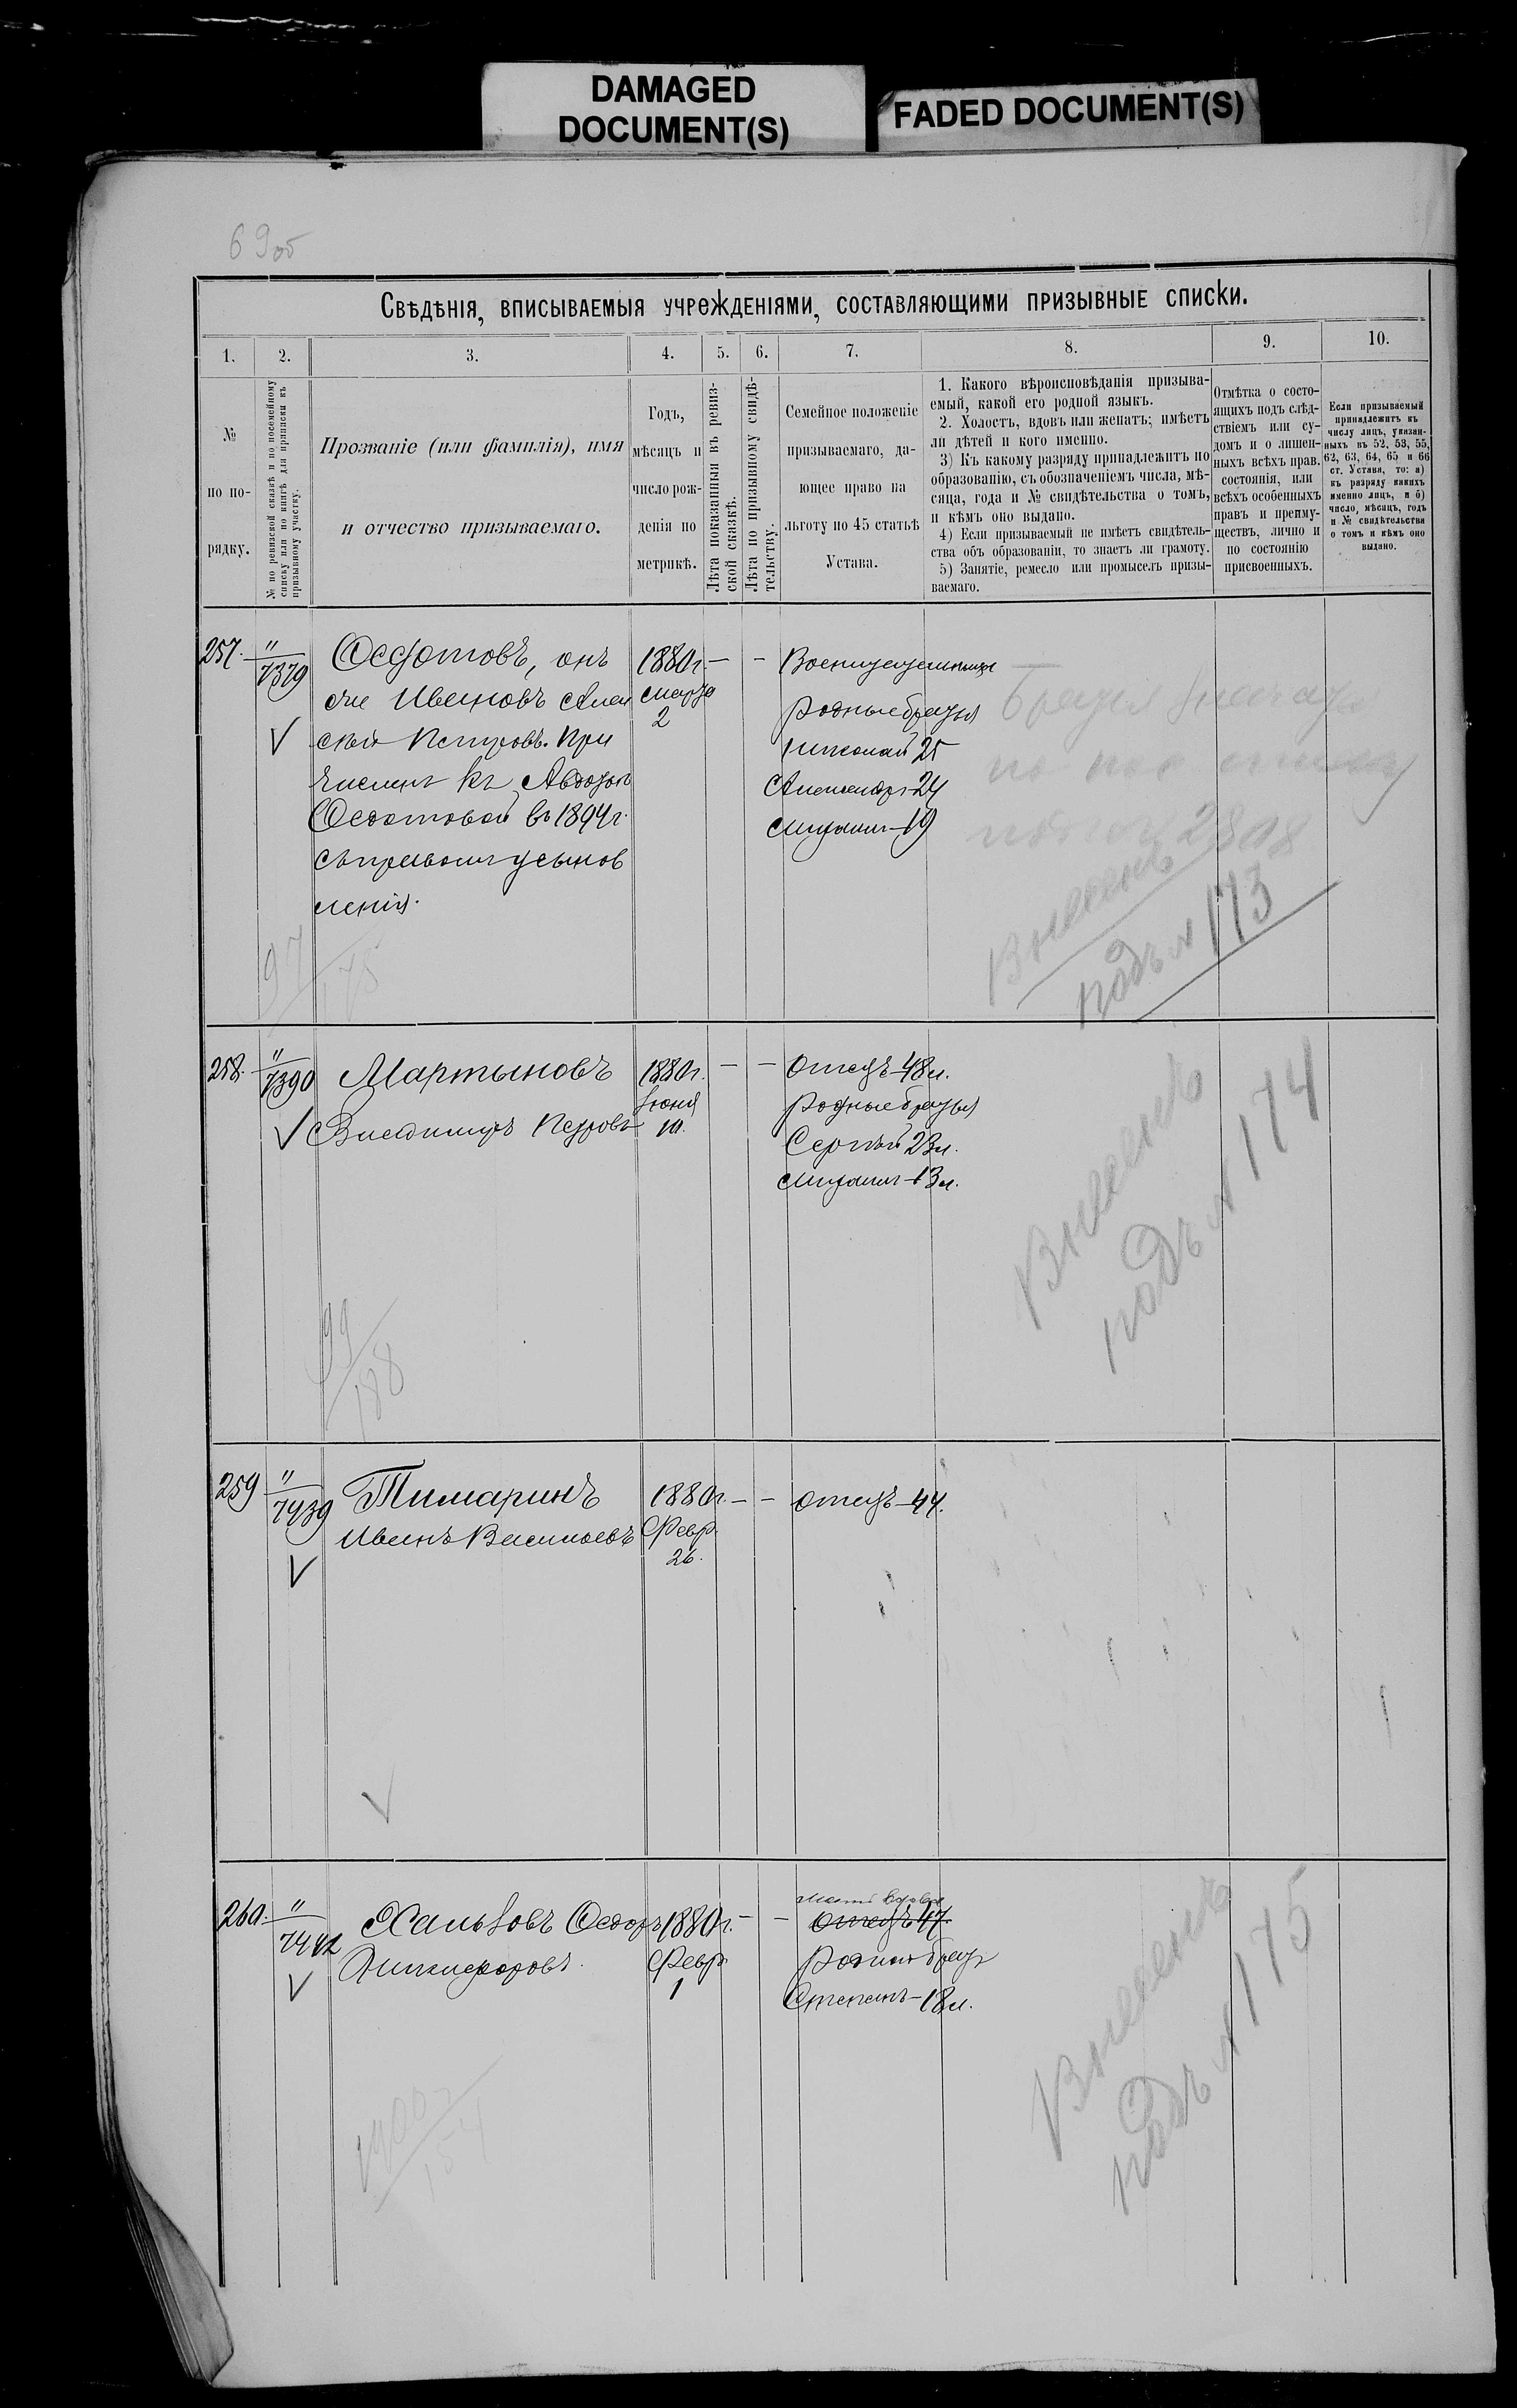 DAMAGED
DOCUMENT(S)
FADED DOCUMENT(S)
69об
Свѣдѣнія, вписываемыя учрежденіями, составляющими призывные списки.
1. 2. 3. 4. 5. 6. 7. 8. 9. 10.
№
по по-
рядку.
№ по ревизской сказкѣ и по посемейному
списку или по книгѣ для приписки къ
призывному участку.
Прозваніе (или фамилія), имя
и отчество призываемаго.
Годъ,
мѣсяцъ и
число рож-
денія по
метрикѣ.
Лѣта показанныя въ ревиз-
ской сказкѣ.
Лѣта по призывному свидѣ-
тельству.
Семейное положеніе
призываемаго, да-
ющее право на
льготу по 45 статьѣ
Устава.
1. Какого вѣроисповѣданія призыва-
емый, какой его родной языкъ.
2. Холостъ, вдовъ или женатъ; имѣетъ
ли дѣтей и кого именно.
3) Къ какому разряду принадлежитъ по
образованію, съ обозначеніемъ числа, мѣ-
сяца, года и № свидѣтельства о томъ,
и кѣмъ оно выдано.
4) Если призываемый не имѣетъ свидѣтель-
ства объ образованіи, то знаетъ ли грамоту.
5) Занятіе, ремесло или промыселъ призы-
ваемаго.
Отмѣтка о состо-
ящихъ подъ слѣд-
ствіемъ или су-
домъ и о лишен-
ныхъ всѣхъ прав.
состоянія, или
всѣхъ особенныхъ
правъ и преиму-
ществъ, лично и
по состоянію
присвоенныхъ.
Если призываемый
принадлежитъ къ
числу лицъ, указан-
ныхъ въ 52, 53, 55,
62, 63, 64, 65 и 66
ст. Устава, то: а)
къ разряду какихъ
именно лицъ, и б)
число, мѣсяцъ, годъ
и № свидѣтельства
о томъ и кѣмъ оно
выдано.
257. " 7379 Ѳедотовъ, онъ 1880г. — —
же Ивановъ Алек марта родные братья
сѣй Петровъ. При 2 николай 25
численъ къ Авдотьѣ Александръ 24
Ѳедотовой въ 1894г. михаилъ 19
съ правомъ усынов
ленія.
Братья
2808
Внесенъ
подъ № 173
97
175
258. " 7390 Мартыновъ 1880г. — — отецъ 48 л.
Владимиръ Петровъ Іюня 10. родные братья
Сергѣй 23 л.
михаилъ 13 л.
Внесенъ
подъ № 174
99
188
259 " 7439 Тимаринъ 1880г. — — отецъ 44.
Иванъ Васильевъ Февр. 26.
260. " 7442 Хальзовъ Ѳедоръ 1880г. — — отецъ 47.
Никифоровъ. Февр. 1 мать вдова
родной братъ
Степанъ 18 л.
Внесенъ
подъ № 175